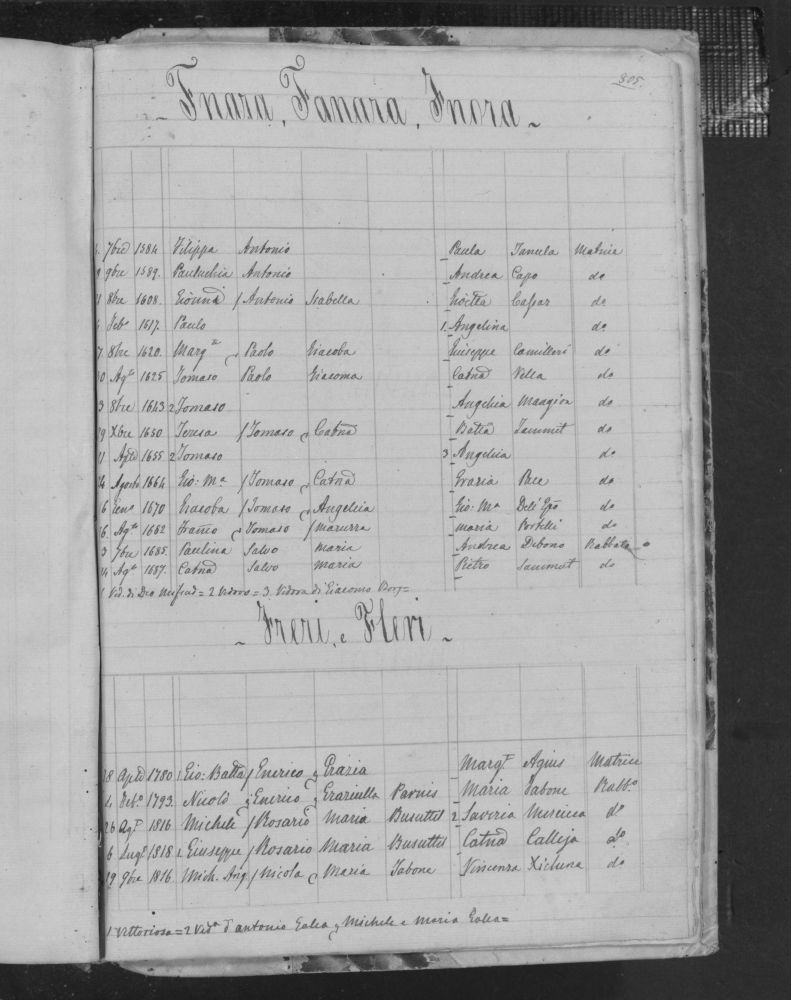 305.
Fnara, Fanara, Fnora
7bre 1584 Filippa Antonio Paula Matrice
9bre 1589. Antonio Andrea Capo do
8bre 1608. / Antonio Isabella Caspar do
Feb° 1617. Paulo 1 Angelina do
7 8bre 1620. Marg.ta Paolo Giacoba Giuseppe Camilleri do
Ag.to 1625 Tomaso Paolo Giacoma Catnd Vella do
3 8bre 1643 2 Tomaso Angelica Mangion do
29 Xbre 1650 Teresa / Tomaso e Catnd Batta Sammut do
1655 2 Tomaso 3 Angelica do
24 Agosto 1664 Gio: Ma / Tomaso e Catnd Grazia Pace do
6 Gen° 1670 Giacoba / Tomaso e Angelica Gio: Ma do
6. Ag.to 1682 e Tomaso / Maruzza Maria Portelli do
3 7bre 1685. Paulina Salvo Maria Andrea Debono Rabbato
Ag.to 1687. Catnd Salvo Maria Pietro Sammut do
1 Vid. di = 2 Vedovo = 3. Vedova di Giacomo Borg =
Freri, e Fleri
28 1780 1. Gio: Batta / Enerico e Grazia Marg.ta Agius Matrice
4 Feb.° 1793. Nicolò e Enerico e Graziulla Parnis Maria Tabone Rabb.°
26 Ag.to 1816 Michele / Rosario Maria Busuttil 2 Saveria Muscica do
6 Lug.° 1818 1. Giuseppe / Rosario Maria Busuttil Catnd Calleja do
19 9bre 1816. Mich. Ang. / Nicola e Maria Tabone Vincenza Xicluna do
1 Vittoriosa = 2 Vid.a d'Antonio Galea e Michele e Maria Galea =